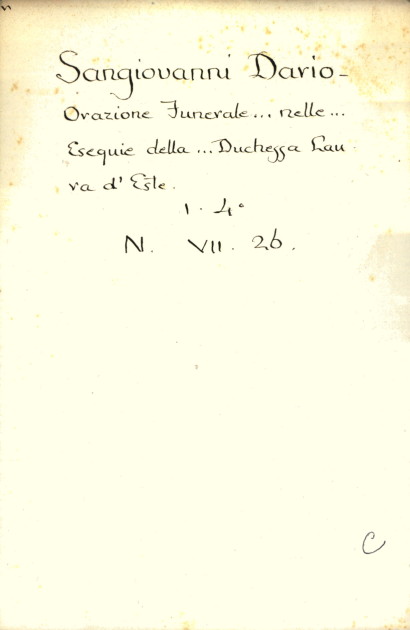 Sangiovanni Dario -
Orazione Funerale ... nelle ...
Esequie della ... Duchezza Lau
ra d' Este.
1. 4°
N. VII. 26.
C